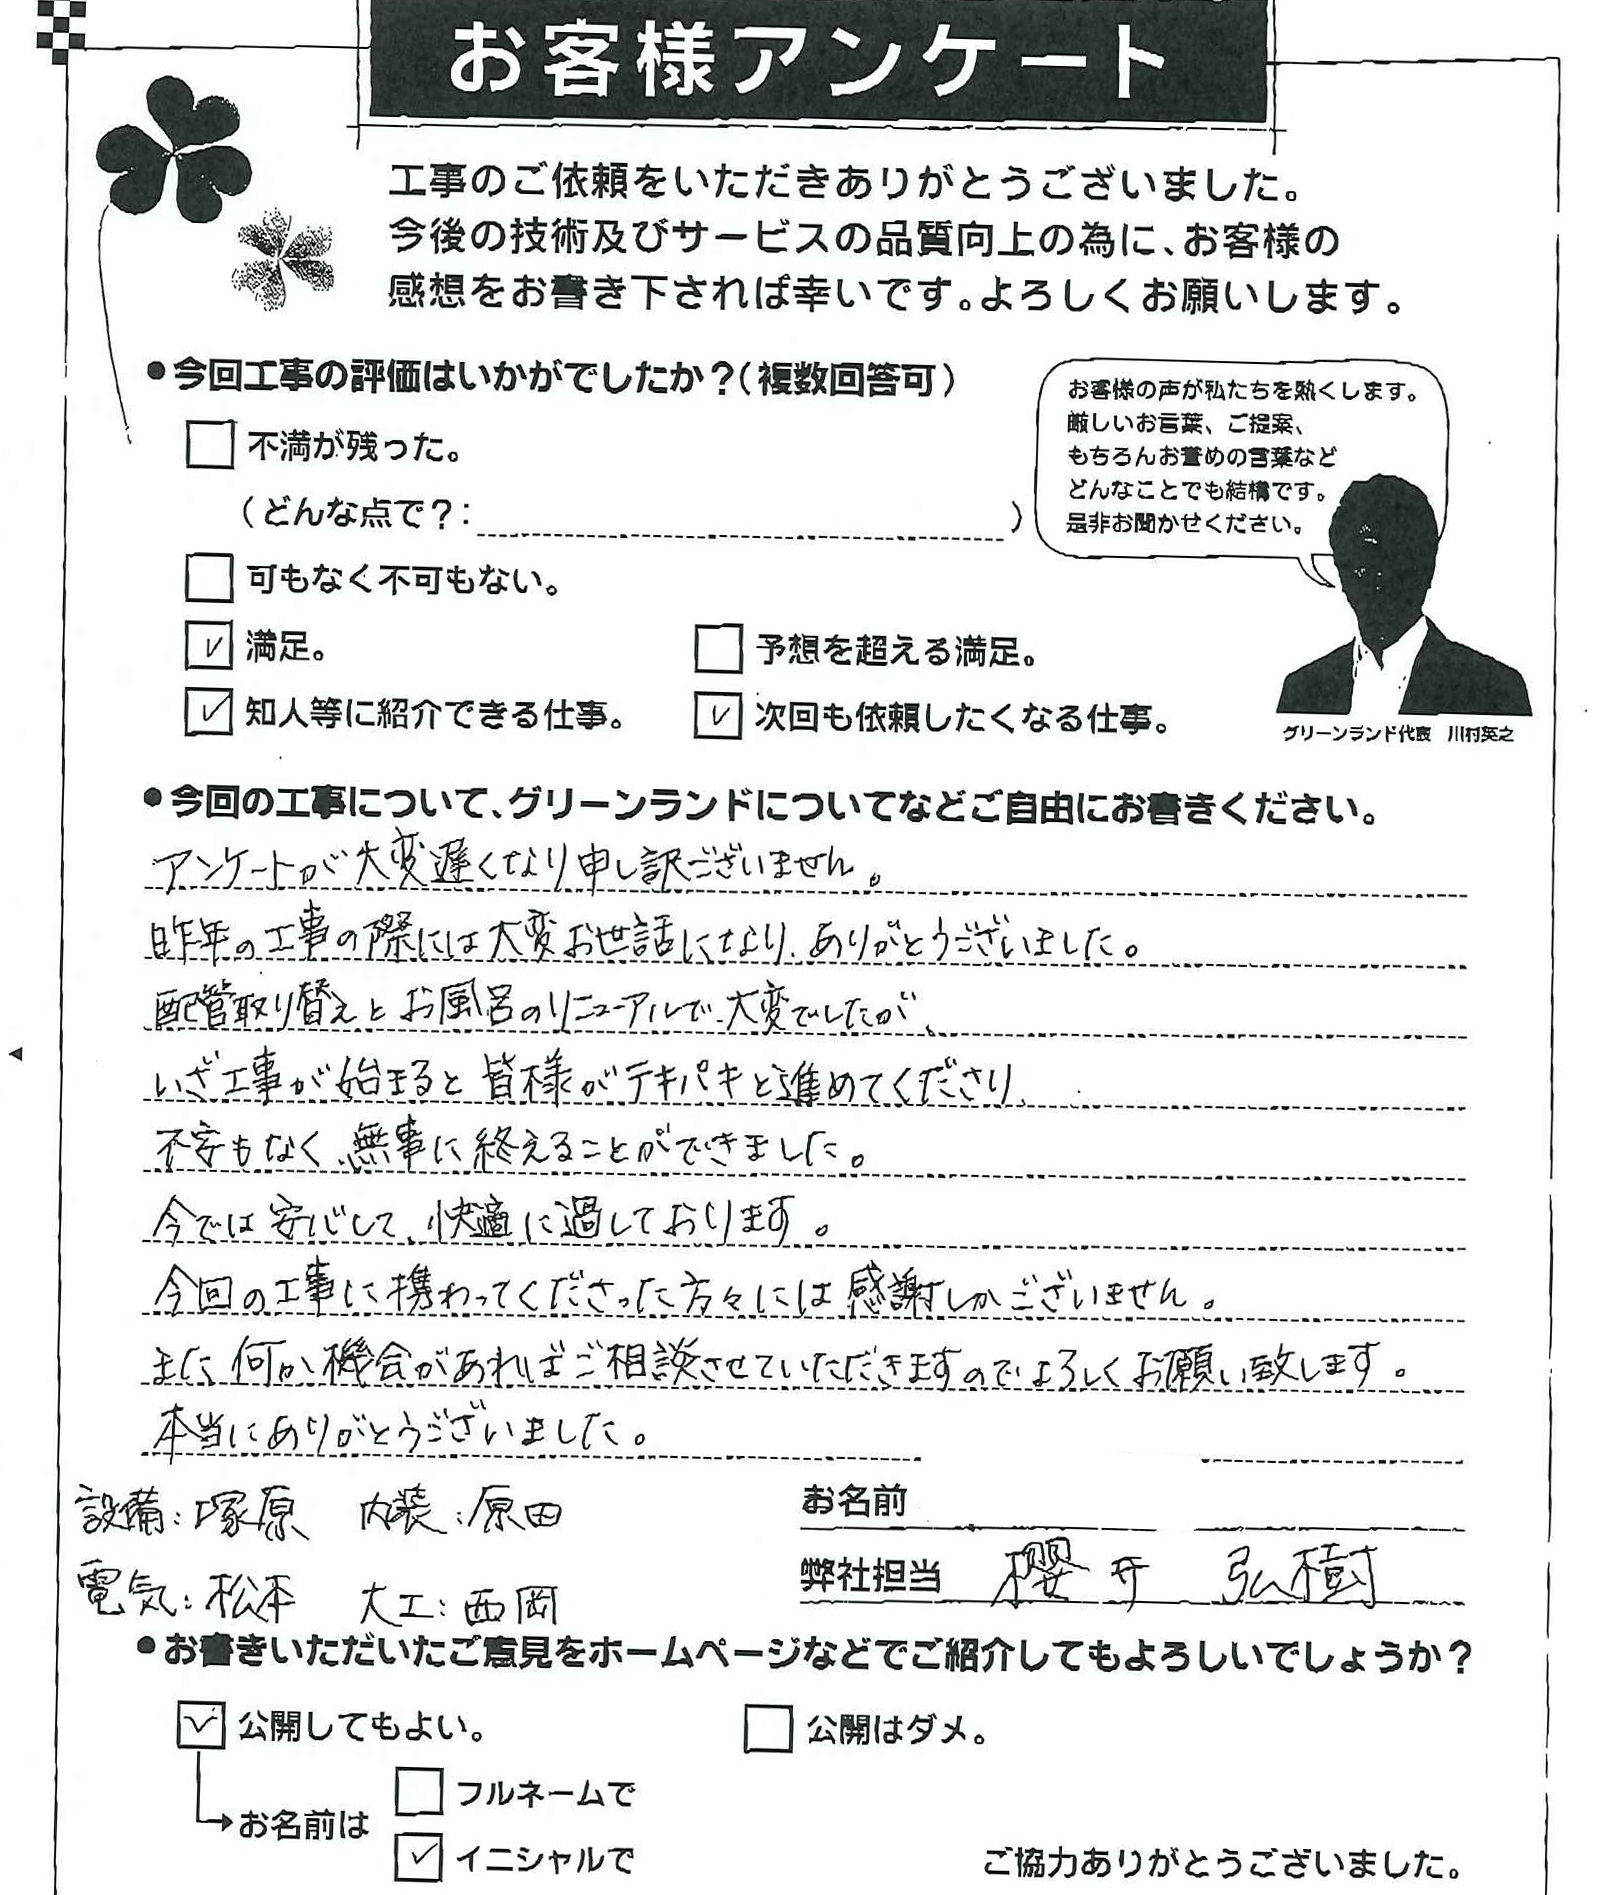 お客様アンケート
工事のご依頼をいただきありがとうございました。
今後の技術及びサービスの品質向上の為に、お客様の
感想をお書き下されば幸いです。よろしくお願いします。
●今回工事の評価はいかがでしたか？（複数回答可）
不満が残った。
（どんな点で？: ）
可もなく不可もない。
満足。
予想を超える満足。
知人等に紹介できる仕事。
次回も依頼したくなる仕事。
お客様の声が私たちを熱くします。
厳しいお言葉、ご提案、
もちろんお誉めの言葉など
どんなことでも結構です。
是非お聞かせください。
グリーンランド代表 川村英之
●今回の工事について、グリーンランドについてなどご自由にお書きください。
アンケートが大変遅くなり申し訳ございません。
昨年の工事の際には大変お世話になり、ありがとうございました。
配管取り替えとお風呂のリニューアルで、大変でしたが、
いざ工事が始まると皆様がテキパキと進めてくださり、
不安もなく、無事に終えることができました。
今では安心して、快適に過しております。
今回の工事に携わってくださった方々には感謝しかございません。
また何か機会があればご相談させていただきますのでよろしくお願い致します。
本当にありがとうございました。
設備:塚原 内装:原田
電気:松本 大工:西岡
お名前
弊社担当 櫻井 弘樹
●お書きいただいたご意見をホームページなどでご紹介してもよろしいでしょうか？
公開してもよい。
公開はダメ。
お名前は
フルネームで
イニシャルで
ご協力ありがとうございました。